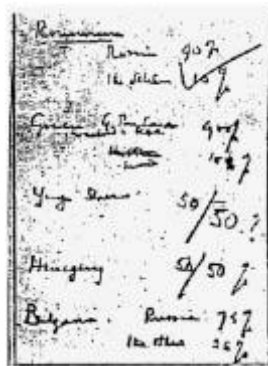 Roumania
Russia 90%
The others 10%
Greece G. Britain 90%
10%
Yugoslavia 50/50%
Hungary 50/50%
Bulgaria Russia 75%
The others 25%